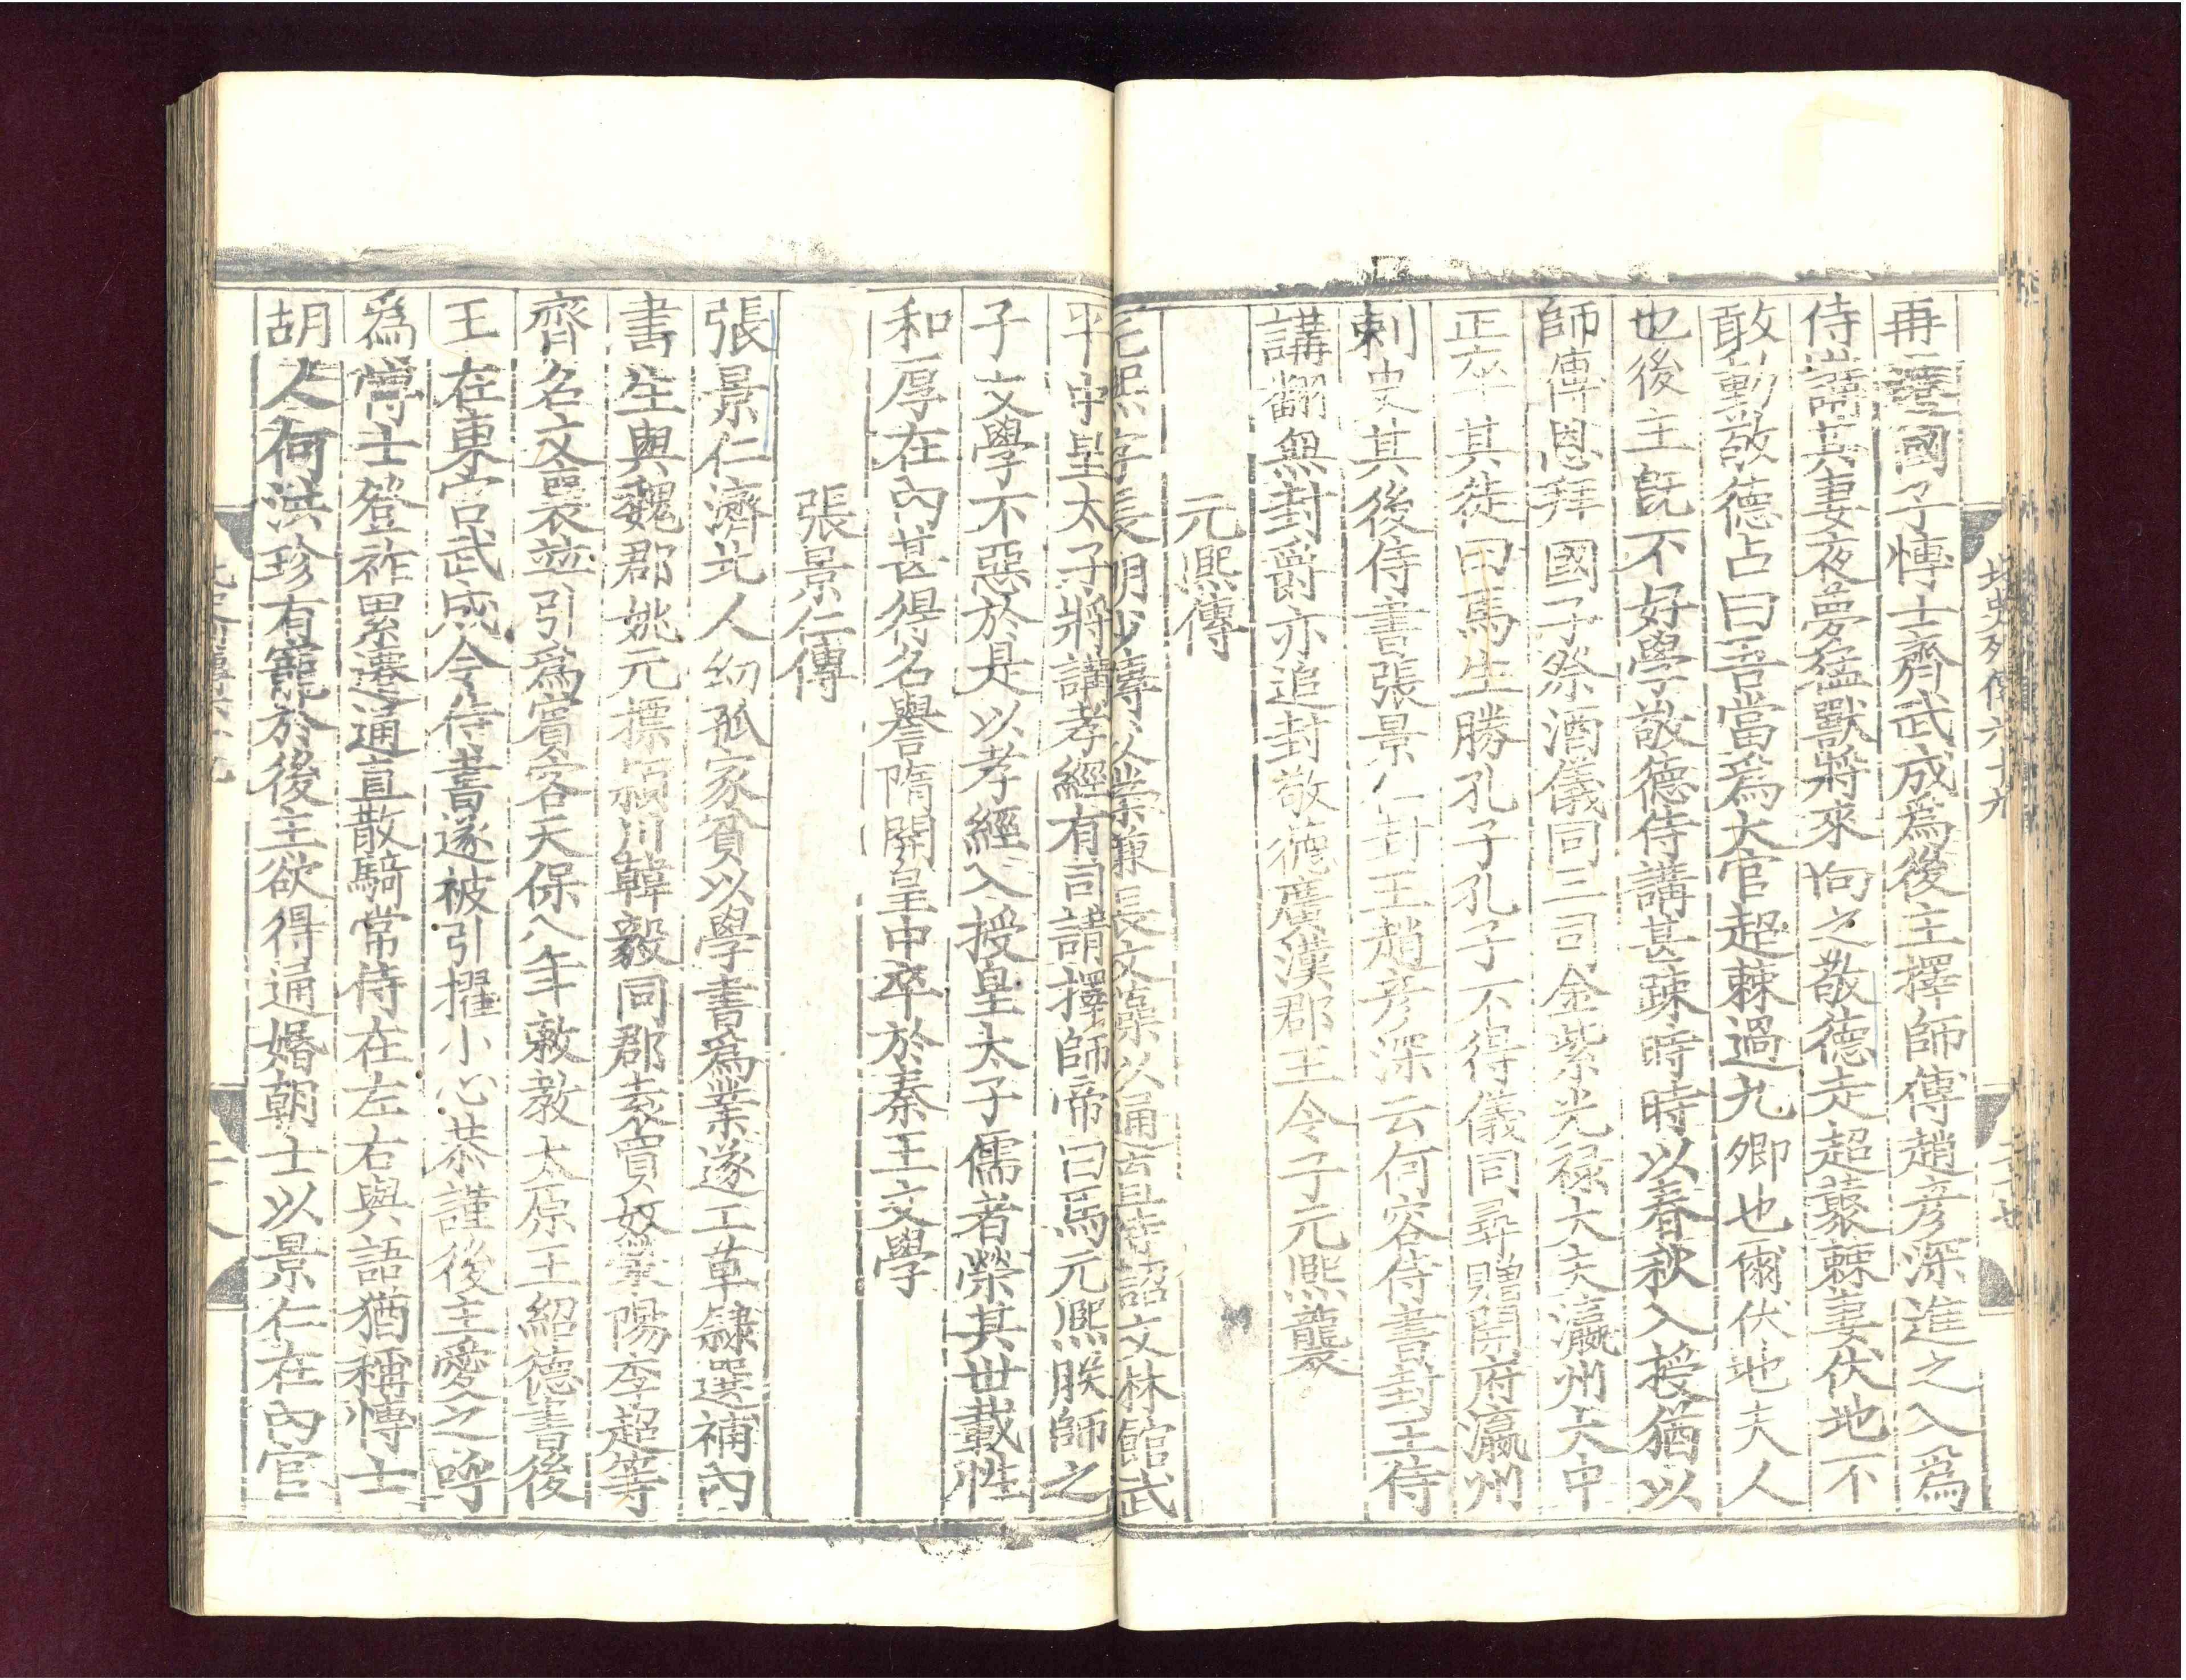 北史列傳六十九
再遷國子博士齊武成爲後主擇師傅趙彥深進之入爲
侍講其妻夜夢猛獸將來向之敬德走超叢棘妻伏地不
敢動敬德占曰吾當爲大官超棘過九卿也爾伏地夫人
也後主旣不好學敬德侍講甚疎時時以春秋入授猶以
師傅恩拜國子祭酒儀同三司金紫光祿大夫瀛州大中
正卒其徒曰馬生勝孔子孔子不得儀同尋贈開府瀛州
刺史其後侍書張景仁封王趙彥深云何容侍書封王侍
講翻無封爵亦追封敬德廣漢郡王令子元熙襲
元熙傳
元熙字長明少傳父業兼長文藻以通直待詔文林館武
平中皇太子將講孝經有司請擇師帝曰馬元熙朕師之
子文學不惡於是以孝經入授皇太子儒者榮其世載性
和厚在內甚得名譽隋開皇中卒於秦王文學
張景仁傳
張景仁濟北人幼孤家貧以學書爲業遂工草隸選補內
書生與魏郡姚元標潁川韓毅同郡袁買奴滎陽李超等
齊名文襄並引爲賓客天保八年敕教太原王紹德書後
王在東宮武成令侍書遂被引擢小心恭謹後主愛之呼
爲博士登祚累遷通直散騎常侍在左右與語猶稱博士
胡人何洪珍有寵於後主欲得通婚朝士以景仁在內官